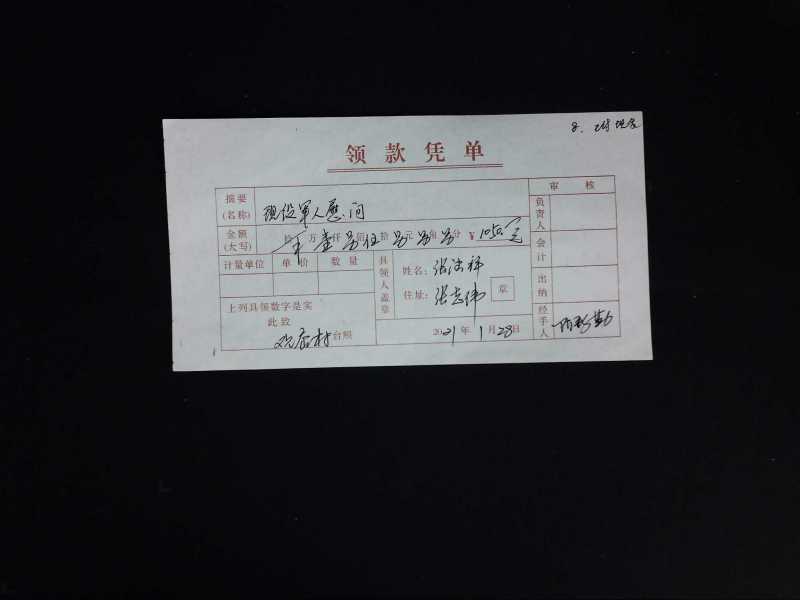 领款凭单
审核
摘要
(名称)
现役军人慰问
负责人
金额
(大写)
拾万壹仟另佰伍拾另元另角另分 ¥1050元
会计
计量单位 单价 数量
具领人盖章
姓名：
住址：
章
出纳
上列具领数字是实
此致
村台照
2021年1月28日
经手人